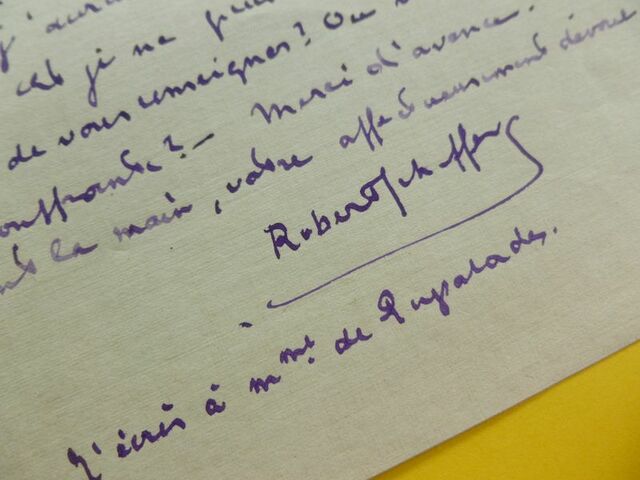 j'aura
cas je ne pui
de vous renseigner? Ou
souffrante? — Merci d'avance.
la main, votre affectueusement dévoué
Robert Scheffer
J'écris à Mme. de Puyalades.